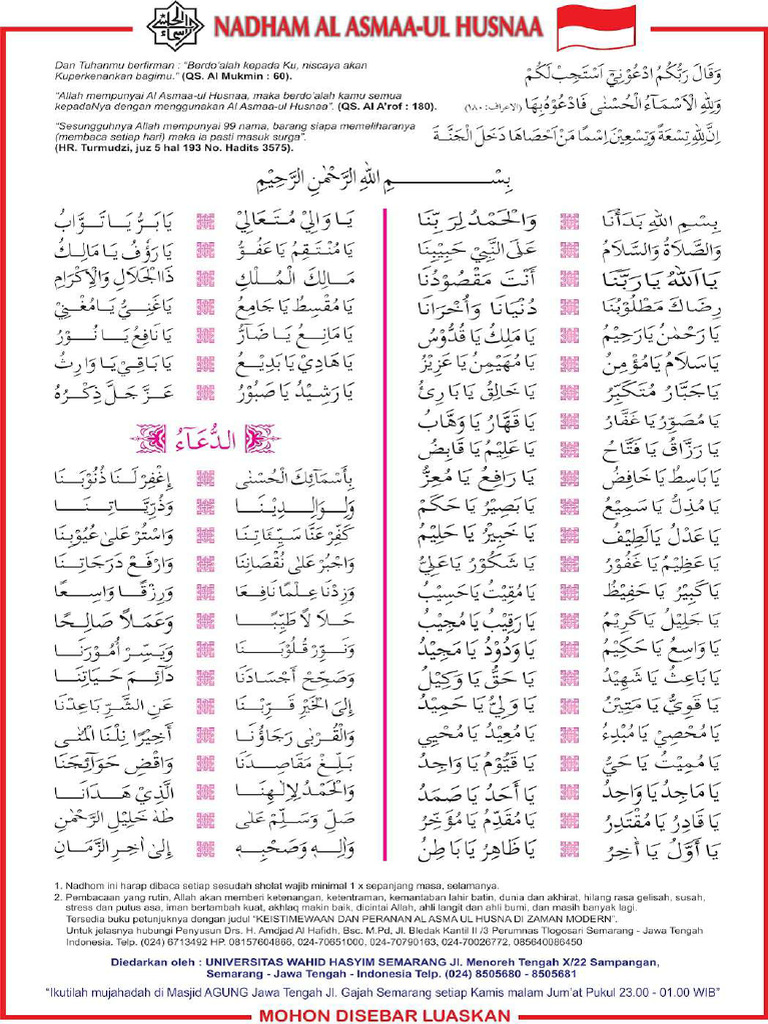 NADHAM AL ASMAA-UL HUSNAA
Dan Tuhanmu berfirman : "Berdo'alah kepada Ku, niscaya akan
Kuperkenankan bagimu." (QS. Al Mukmin : 60).
"Allah mempunyai Al Asmaa-ul Husnaa, maka berdo'alah kamu semua
kepadaNya dengan menggunakan Al Asmaa-ul Husnaa". (QS. Al A'rof : 180).
"Sesungguhnya Allah mempunyai 99 nama, barang siapa memeliharanya
(membaca setiap hari) maka ia pasti masuk surga".
(HR. Turmudzi, juz 5 hal 193 No. Hadits 3575).
وَقَالَ رَبُّكُمُ ادْعُوْنِيْٓ اَسْتَجِبْ لَكُمْ
وَلِلّٰهِ الْاَسْمَآءُ الْحُسْنٰى فَادْعُوْهُ بِهَا (الاعراف: ١٨٠)
اِنَّ لِلّٰهِ تِسْعَةً وَتِسْعِيْنَ اِسْمًا مَنْ اَحْصَاهَا دَخَلَ الْجَنَّةَ
بِسْمِ اللّٰهِ الرَّحْمٰنِ الرَّحِيْمِ
بِسْمِ اللّٰهِ بَدَأْنَا وَالْحَمْدُ لِرَبِّنَا
وَالصَّلَاةُ وَالسَّلَامُ عَلَى النَّبِيِّ حَبِيْبِنَا
يَا اَللّٰهُ يَا رَبَّنَا أَنْتَ مَقْصُوْدُنَا
رِضَاكَ مَطْلُوْبُنَا دُنْيَانَا وَأُخْرَانَا
يَا رَحْمٰنُ يَا رَحِيْمُ يَا مَلِكُ يَا قُدُّوْسُ
يَا سَلَامُ يَا مُؤْمِنُ يَا مُهَيْمِنُ يَا عَزِيْزُ
يَا جَبَّارُ مُتَكَبِّرُ يَا خَالِقُ يَا بَارِئُ
يَا مُصَوِّرُ يَا غَفَّارُ يَا قَهَّارُ يَا وَهَّابُ
يَا رَزَّاقُ يَا فَتَّاحُ يَا عَلِيْمُ يَا قَابِضُ
يَا بَاسِطُ يَا خَافِضُ يَا رَافِعُ يَا مُعِزُّ
يَا مُذِلُّ يَا سَمِيْعُ يَا بَصِيْرُ يَا حَكَمُ
يَا عَدْلُ يَا لَطِيْفُ يَا خَبِيْرُ يَا حَلِيْمُ
يَا عَظِيْمُ يَا غَفُوْرُ يَا شَكُوْرُ يَا عَلِيُّ
يَا كَبِيْرُ يَا حَفِيْظُ يَا مُقِيْتُ يَا حَسِيْبُ
يَا جَلِيْلُ يَا كَرِيْمُ يَا رَقِيْبُ يَا مُجِيْبُ
يَا وَاسِعُ يَا حَكِيْمُ يَا وَدُوْدُ يَا مَجِيْدُ
يَا بَاعِثُ يَا شَهِيْدُ يَا حَقُّ يَا وَكِيْلُ
يَا قَوِيُّ يَا مَتِيْنُ يَا وَلِيُّ يَا حَمِيْدُ
يَا مُحْصِيْ يَا مُبْدِءُ يَا مُعِيْدُ يَا مُحْيِيْ
يَا مُمِيْتُ يَا حَيُّ يَا قَيُّوْمُ يَا وَاجِدُ
يَا مَاجِدُ يَا وَاحِدُ يَا أَحَدُ يَا صَمَدُ
يَا قَادِرُ يَا مُقْتَدِرُ يَا مُقَدِّمُ يَا مُؤَخِّرُ
يَا أَوَّلُ يَا اٰخِرُ يَا ظَاهِرُ يَا بَاطِنُ
يَا وَالِيْ مُتَعَالِيْ يَا بَرُّ يَا تَوَّابُ
يَا مُنْتَقِمُ يَا عَفُوُّ يَا رَؤُفُ يَا مَالِكُ
مَالِكَ الْمُلْكِ ذَا الْجَلَالِ وَالْإِكْرَامِ
يَا مُقْسِطُ يَا جَامِعُ يَا غَنِيُّ يَا مُغْنِيْ
يَا مَانِعُ يَا ضَآرُّ يَا نَافِعُ يَا نُوْرُ
يَا هَادِيْ يَا بَدِيْعُ يَا بَاقِيْ يَا وَارِثُ
يَا رَشِيْدُ يَا صَبُوْرُ عَزَّ جَلَّ ذِكْرُهُ
الدُّعَآءُ
بِأَسْمَائِكَ الْحُسْنٰى إِغْفِرْ لَنَا ذُنُوْبَنَا
وَلِوَالِدِيْنَا وَذُرِّيَّاتِنَا
كَفِّرْ عَنَّا سَيِّئَاتِنَا وَاسْتُرْ عَلٰى عُيُوْبِنَا
وَاجْبُرْ عَلٰى نُقْصَانِنَا وَارْفَعْ دَرَجَاتِنَا
وَزِدْنَا عِلْمًا نَافِعَا وَرِزْقًا وَاسِعًا
حَلَالًا طَيِّبًا وَعَمَلًا صَالِحًا
وَنَوِّرْ قُلُوْبَنَا وَيَسِّرْ أُمُوْرَنَا
وَصَحِّحْ أَجْسَادَنَا دَآئِمَ حَيَاتِنَا
إِلَى الْخَيْرِ قَرِّبْنَا عَنِ الشَّرِّ بَاعِدْنَا
وَالْقُرْبٰى رَجَاؤُنَا أَخِيْرًا نِلْنَا الْمُنٰى
بَلِّغْ مَقَاصِدَنَا وَاقْضِ حَوَآئِجَنَا
وَالْحَمْدُ لِإِلٰهِنَا الَّذِيْ هَدَانَا
صَلِّ وَسَلِّمْ عَلٰى طٰهٰ خَلِيْلِ الرَّحْمٰنِ
وَاٰلِهِ وَصَحْبِهِ إِلٰى اٰخِرِ الزَّمَانِ
1. Nadhom ini harap dibaca setiap sesudah sholat wajib minimal 1 x sepanjang masa, selamanya.
2. Pembacaan yang rutin, Allah akan memberi ketenangan, ketentraman, kemantaban lahir batin, dunia dan akhirat, hilang rasa gelisah, susah,
stress dan putus asa, iman bertambah kuat, akhlaq makin baik, dicintai Allah, ahli langit dan ahli bumi, dan masih banyak lagi.
Tersedia buku petunjuknya dengan judul "KEISTIMEWAAN DAN PERANAN AL ASMA UL HUSNA DI ZAMAN MODERN".
Untuk jelasnya hubungi Penyusun Drs. H. Amdjad Al Hafidh, Bsc. M.Pd, Jl. Bledak Kantil II /3 Perumnas Tlogosari Semarang - Jawa Tengah
Indonesia. Telp. (024) 6713492 HP. 08157604866, 024-70651000, 024-70790163, 024-70026772, 085640086450
Diedarkan oleh : UNIVERSITAS WAHID HASYIM SEMARANG Jl. Menoreh Tengah X/22 Sampangan,
Semarang - Jawa Tengah - Indonesia Telp. (024) 8505680 - 8505681
"Ikutilah mujahadah di Masjid AGUNG Jawa Tengah Jl. Gajah Semarang setiap Kamis malam Jum'at Pukul 23.00 - 01.00 WIB"
MOHON DISEBAR LUASKAN